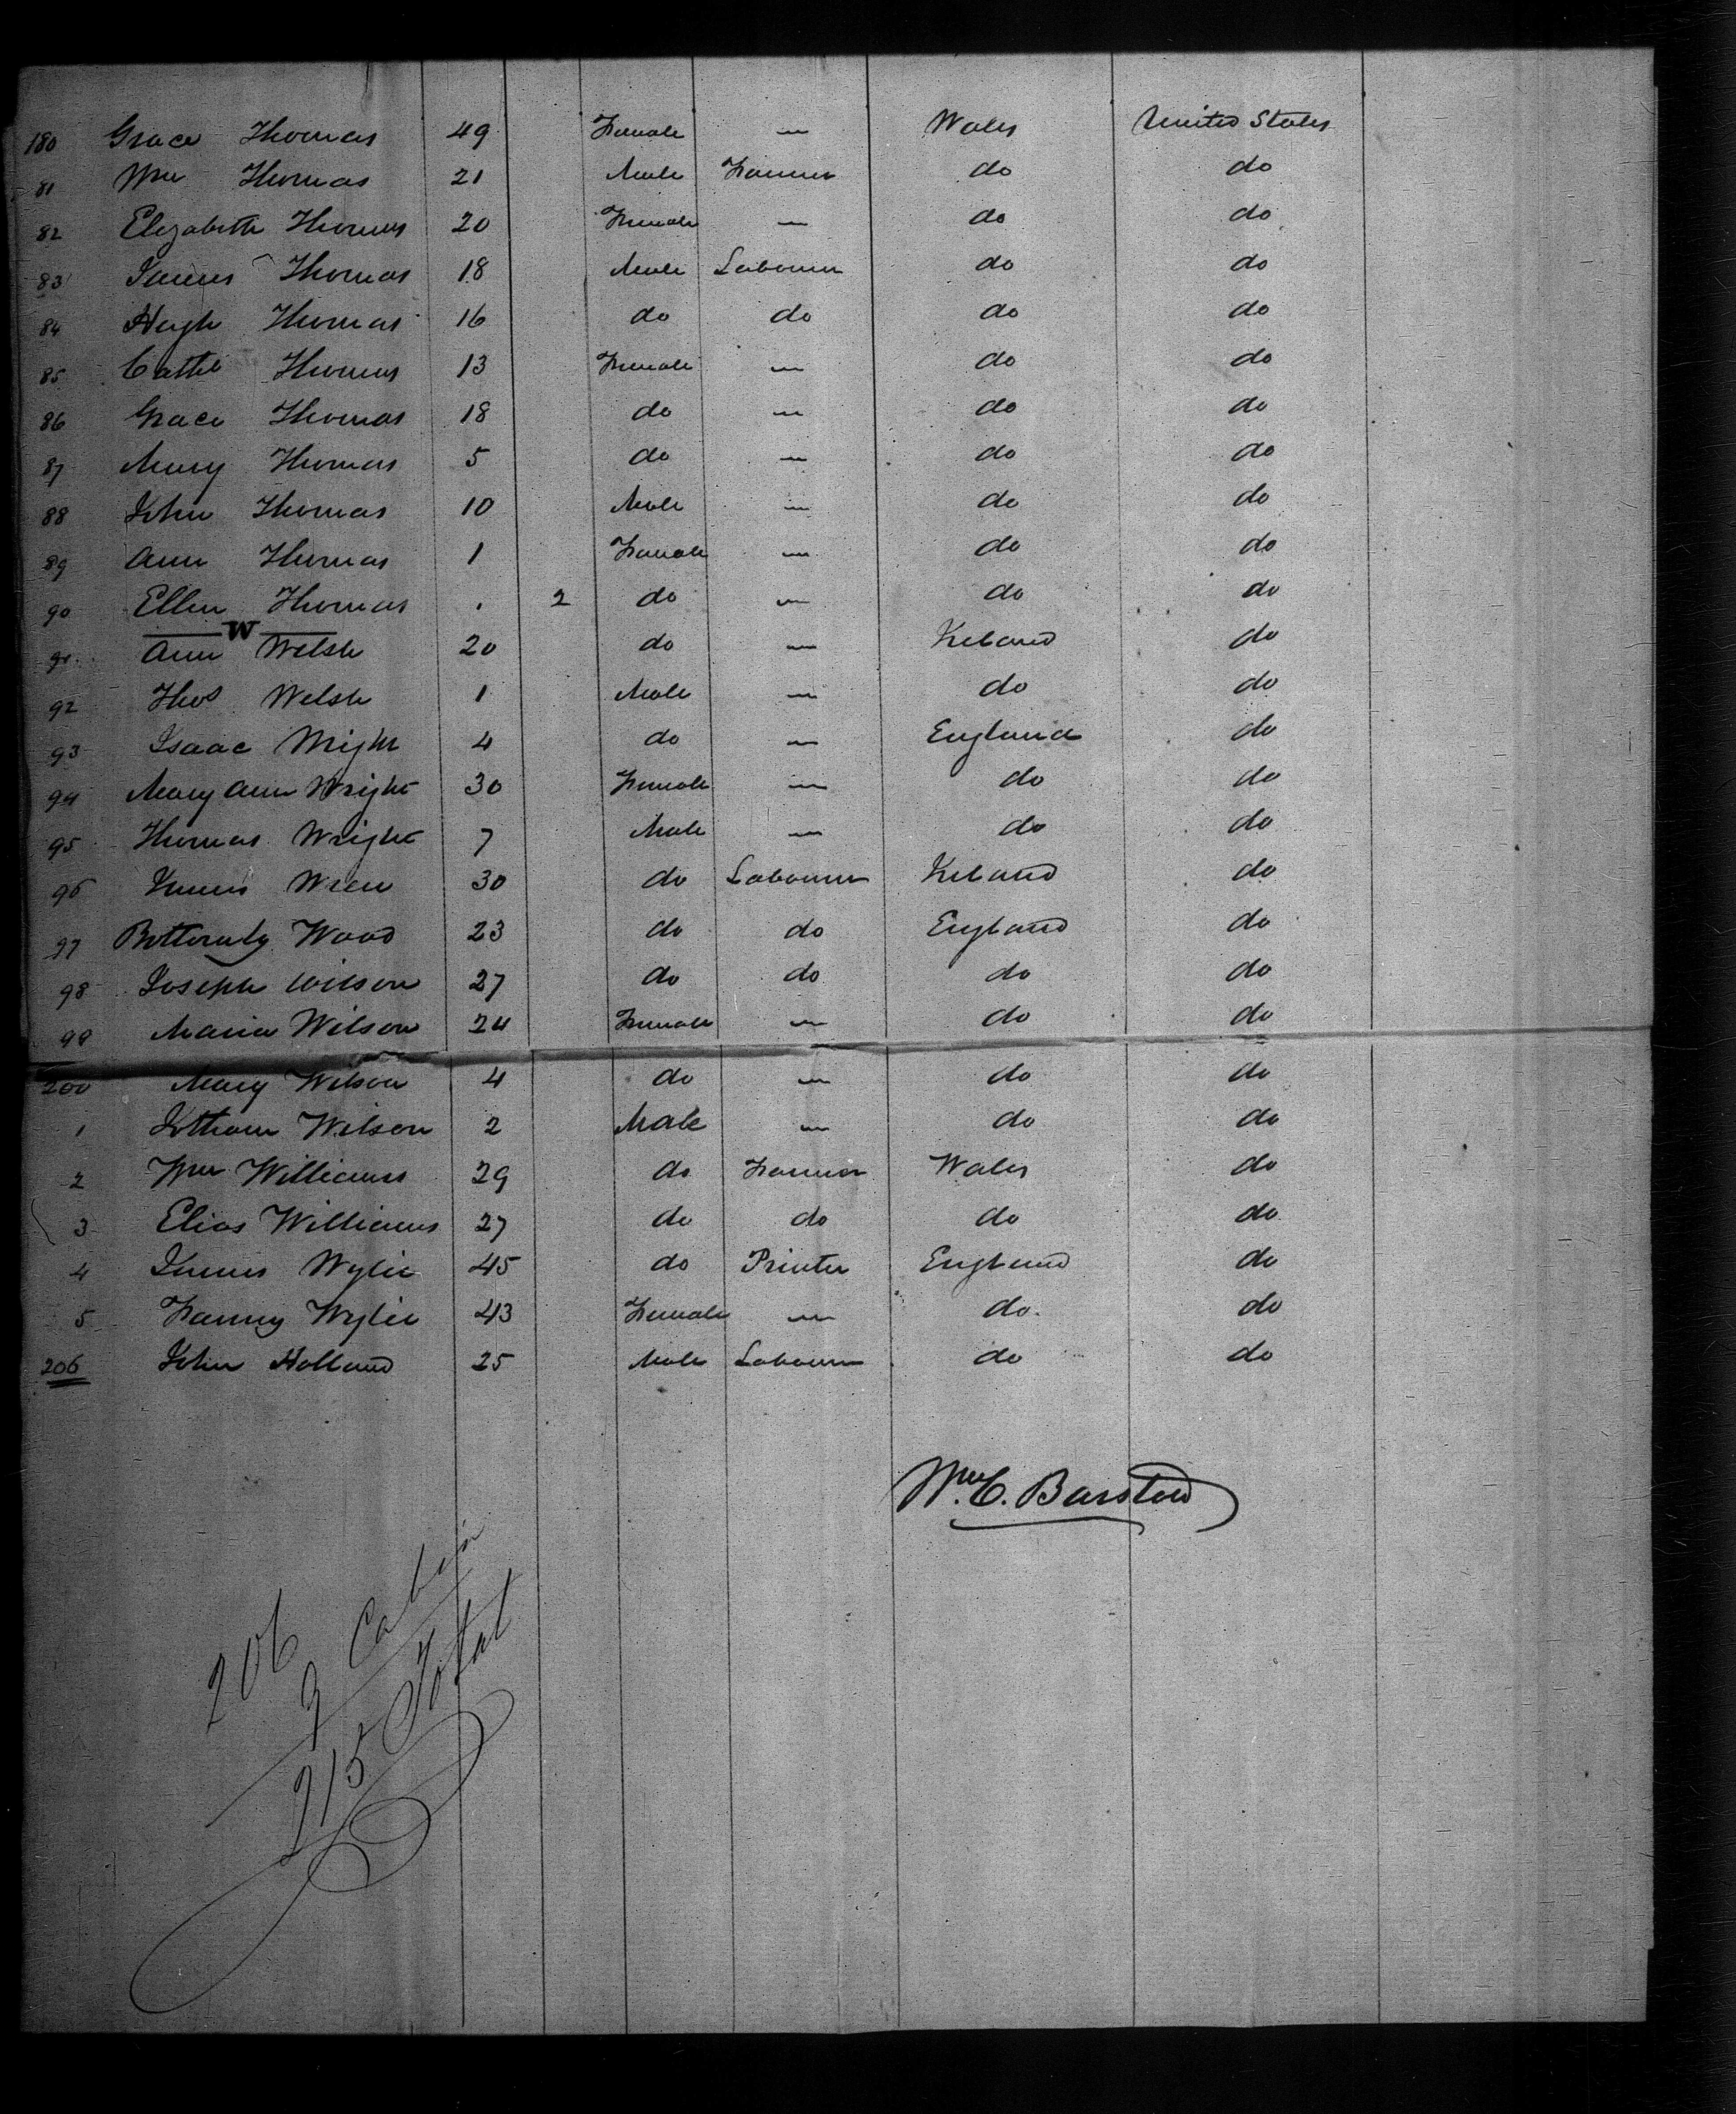 180 Grace Thomas 49 Female — Wales United States
81 Wm Thomas 21 Male Farmer do do
82 Elizabeth Thomas 20 Female — do do
83 James Thomas 18 Male Labourer do do
84 Hugh Thomas 16 do do do do
85 Cathe Thomas 13 Female — do do
86 Grace Thomas 18 do — do do
87 Mary Thomas 5 do — do do
88 John Thomas 10 Male — do do
89 Ann Thomas 1 Female — do do
90 Ellen Thomas . 2 do — do do
W
91 Ann Welsh 20 do — Ireland do
92 Thos Welsh 1 Male — do do
93 Isaac Wright 4 do — England do
94 Mary Ann Wright 30 Female — do do
95 Thomas Wright 7 Male — do do
96 James Wren 30 do Labourer Ireland do
97 Wood 23 do do England do
98 Joseph Wilson 27 do do do do
99 Maria Wilson 24 Female — do do
200 Mary Wilson 4 do — do do
1 Jotham Wilson 2 Male — do do
2 Wm Williams 29 do Farmer Wales do
3 Elias Williams 27 do do do do
4 James Wylie 45 do Printer England do
5 Fanny Wylie 43 Female — do do
206 John Holland 25 Male Labourer do do
Wm C. Barstow
206
9 Cabin
215 Total